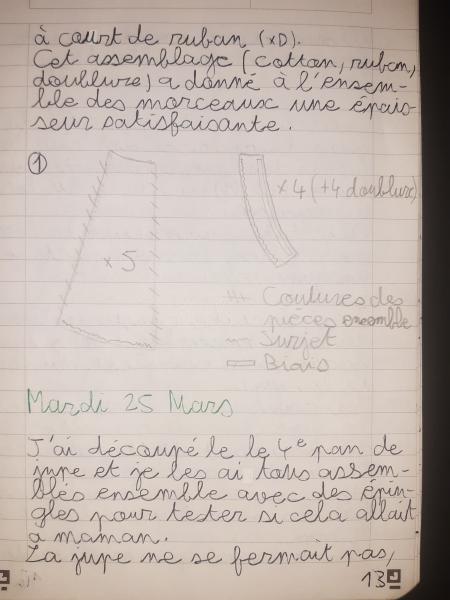 à court de ruban (xD).
Cet assemblage (cotton, ruban,
doublure) a donné à l'ensem-
ble des morceaux une épais-
seur satisfaisante.
1
x 4 (+4 doublure)
x 5
Coutures des
pièces ensemble
Surjet
Biais
Mardi 25 Mars
J'ai découpé le le 4e pan de
jupe et je les ai tous assem-
blés ensemble avec des épin-
gles pour tester si cela allait
a maman.
La jupe ne se fermait pas,
13